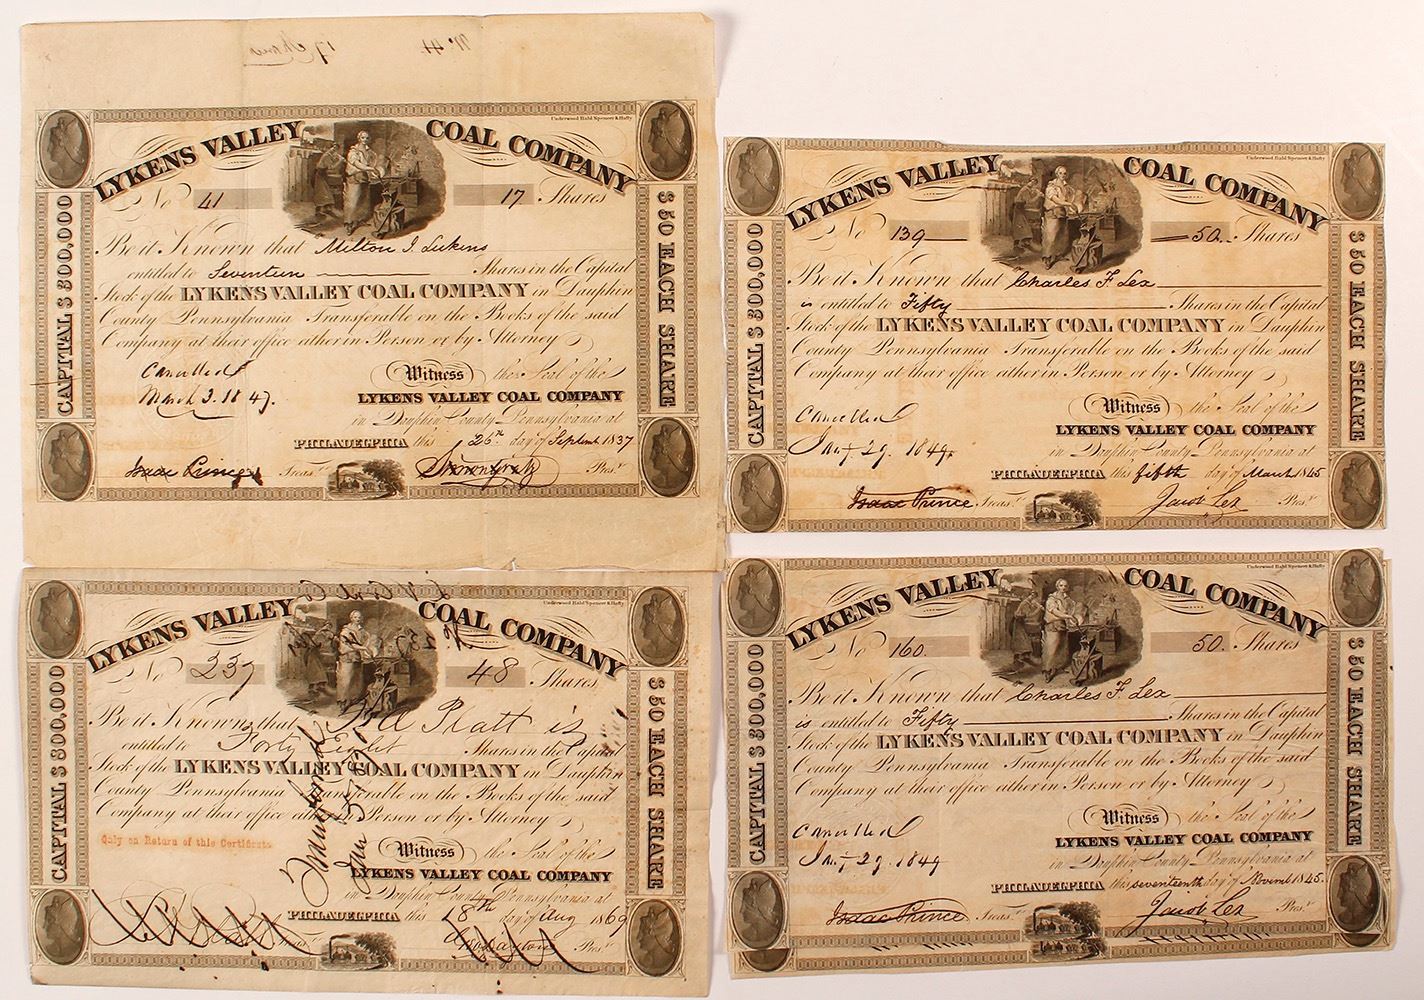 No 41
Underwood Bald Spencer & Hufty
LYKENS VALLEY COAL COMPANY
No 41 17 Shares
Be it Known that Milton J. Lukens
entitled to Seventeen Shares in the Capital
Stock of the LYKENS VALLEY COAL COMPANY in Dauphin
County Pennsylvania Transferable on the Books of the said
Company at their office either in Person or by Attorney
Cancelled
March 3. 1847.
Witness the Seal of the
LYKENS VALLEY COAL COMPANY
in Dauphin County Pennsylvania at
PHILADELPHIA this 26th day of Septemb 1837
Isaac Prince Treas.r Pres.t
CAPITAL $300,000
$50 EACH SHARE
Underwood Bald Spencer & Hufty
LYKENS VALLEY COAL COMPANY
No 139 50 Shares
Be it Known that Charles F Lex
is entitled to Fifty Shares in the Capital
Stock of the LYKENS VALLEY COAL COMPANY in Dauphin
County Pennsylvania Transferable on the Books of the said
Company at their office either in Person or by Attorney
Cancelled
Jany 29. 1849.
Witness the Seal of the
LYKENS VALLEY COAL COMPANY
in Dauphin County Pennsylvania at
PHILADELPHIA this fifth day of March 1845
Isaac Prince Treas.r Jacob Lex Pres.t
CAPITAL $300,000
$50 EACH SHARE
Underwood Bald Spencer & Hufty
LYKENS VALLEY COAL COMPANY
No 237 48 Shares
Be it Known that Pratt is
entitled to Forty Eight Shares in the Capital
Stock of the LYKENS VALLEY COAL COMPANY in Dauphin
County Pennsylvania Transferable on the Books of the said
Company at their office either in Person or by Attorney
Only on Return of this Certificate
Transferred
Witness the Seal of the
LYKENS VALLEY COAL COMPANY
in Dauphin County Pennsylvania at
PHILADELPHIA this 18th day of Aug 1869
Treas.r Pres.t
CAPITAL $300,000
$50 EACH SHARE
Underwood Bald Spencer & Hufty
LYKENS VALLEY COAL COMPANY
No 160. 50. Shares
Be it Known that Charles F Lex
is entitled to Fifty Shares in the Capital
Stock of the LYKENS VALLEY COAL COMPANY in Dauphin
County Pennsylvania Transferable on the Books of the said
Company at their office either in Person or by Attorney
Cancelled
Jany 29. 1849
Witness the Seal of the
LYKENS VALLEY COAL COMPANY
in Dauphin County Pennsylvania at
PHILADELPHIA this seventeenth day of Novemb 1845.
Isaac Prince Treas.r Jacob Lex Pres.t
CAPITAL $300,000
$50 EACH SHARE